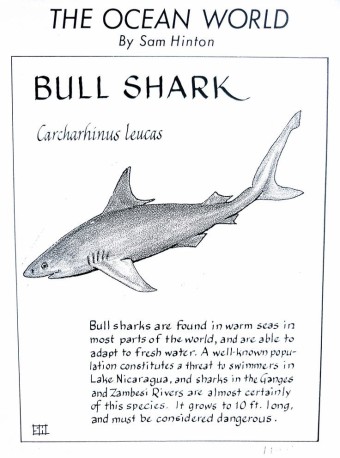 THE OCEAN WORLD
By Sam Hinton
BULL SHARK
Carcharhinus leucas
Bull sharks are found in warm seas in
most parts of the world, and are able to
adapt to fresh water. A well-known popu-
lation constitutes a threat to swimmers in
Lake Nicaragua, and sharks in the Ganges
and Zambesi Rivers are almost certainly
of this species. It grows to 10 ft. long,
and must be considered dangerous.